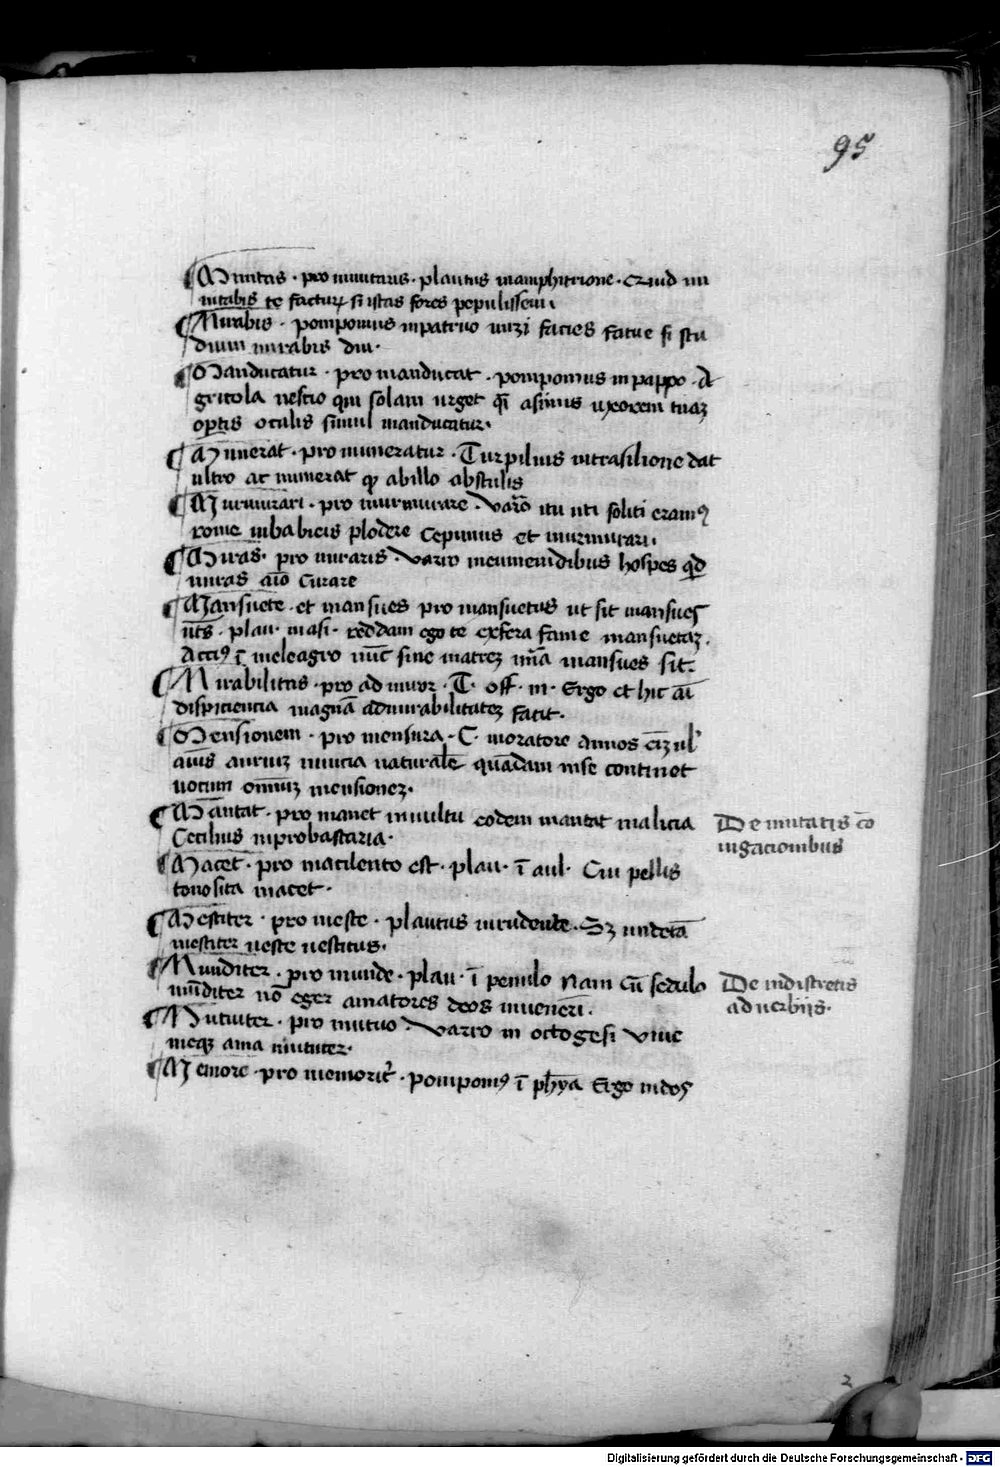 95
Minitas · pro minitaris · plautus inamphitrione · Quid mi
nitabis te facturum si istas fores pepulissem
Mirabis · pomponius inpatruo mirzi facies fatue si stu
dium mirabis diu ·
Manducatur · pro manducat · pomponius inpappo · A
gricola nescio qui solam urget qi asinus uxorem tuaz
optis oculis simul manducatur ·
Munerat · pro muneratur · Turpilius intrasilione dat
ultro ac numerat abillo abstulis
Murmurari · pro murmurare · varo itu uti soliti eramus
rome inbabicis plodere Cepimus et murmurari ·
Miras · pro miraris · varro ineumenidibus hospes quid
miras aio Curare
Mansuete · et mansues pro mansuetus ut sit mansues
plau · masi · reddam ego te exfera fame mansuetaz ·
Accius i meleagro nunc sine matrez mansues sit ·
Mirabilitas · pro admiror · T · off · in · Ergo et hic ai
dispiciencia magna admirabilitatez facit ·
Mensionem · pro mensura · C · moratore Annos
auius auriuz nuncia naturale quadam inse continet
uocum omniuz mensionez ·
Mantat · pro manet inuultu eodem mantat malicia
Cecilius inprobastaria ·
De mutatis co
iugacionibus
Macet · pro macilento est · plau · i aul · Cui pellis
tonosita macet ·
Mestiter · pro meste · plautus inrudente · Sz undeta
mestiter ueste uestitus ·
Munditer · pro munde · plau · i penulo Nam cu sedulo
munditer no eger amatores deos inueneri ·
De indiscretis
aduerbiis ·
Mutuiter · pro mutuo · varro in octogesi viue
meqz ama mutuiter ·
Memore · pro memorit · pomponius i phya Ergo indos
2
Digitalisierung gefördert durch die Deutsche Forschungsgemeinschaft · DFG